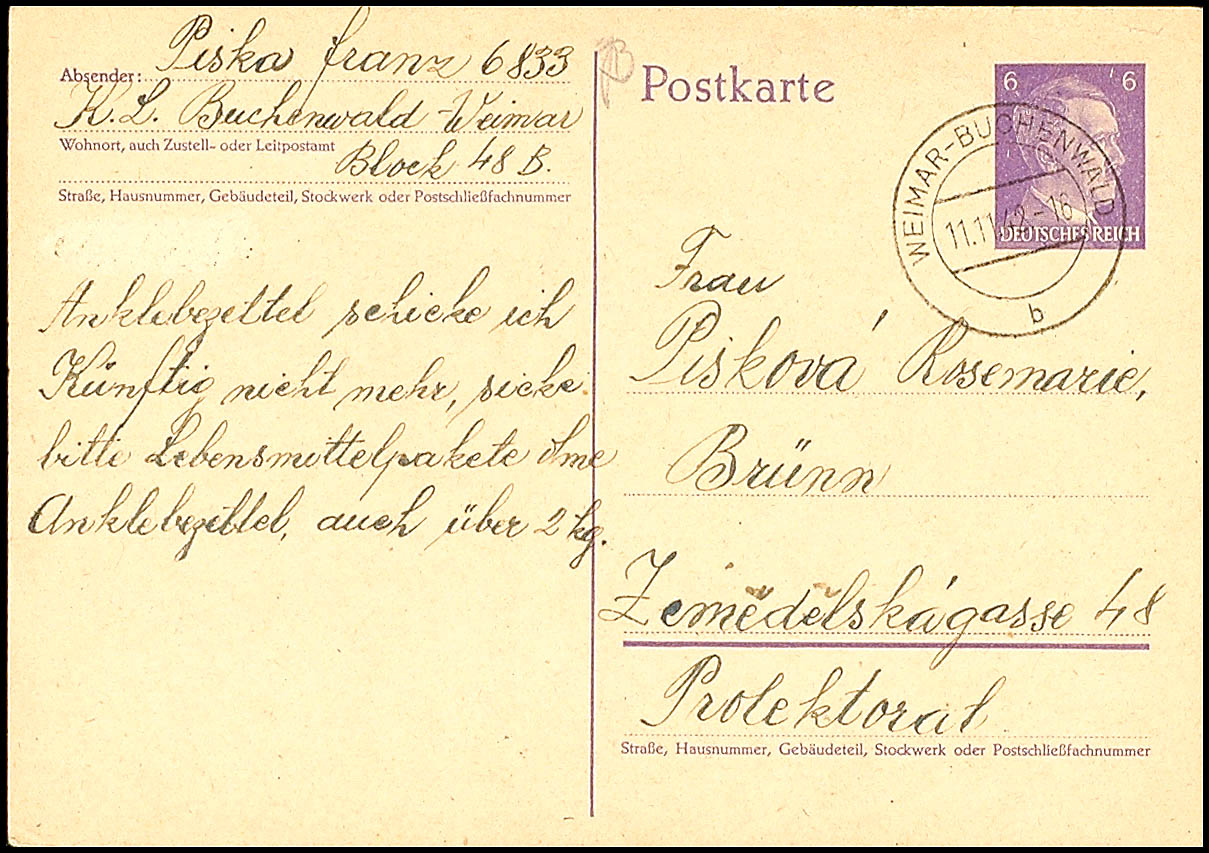 Absender: Piska Franz 6833
K. L. Buchenwald-Weimar
Wohnort, auch Zustell- oder Leitpostamt
Block 48 B.
Straße, Hausnummer, Gebäudeteil, Stockwerk oder Postschließfachnummer
Anklebezettel schicke ich
Künftig nicht mehr, sicke
bitte Lebensmittelpakete ohne
Anklebezettel, auch über 2 kg.
Postkarte
6 6
DEUTSCHES REICH
WEIMAR-BUCHENWALD
11.11.42.-18
b
Frau
Pisková Rosemarie,
Brünn
Zemědelskágasse 48
Protektorat
Straße, Hausnummer, Gebäudeteil, Stockwerk oder Postschließfachnummer